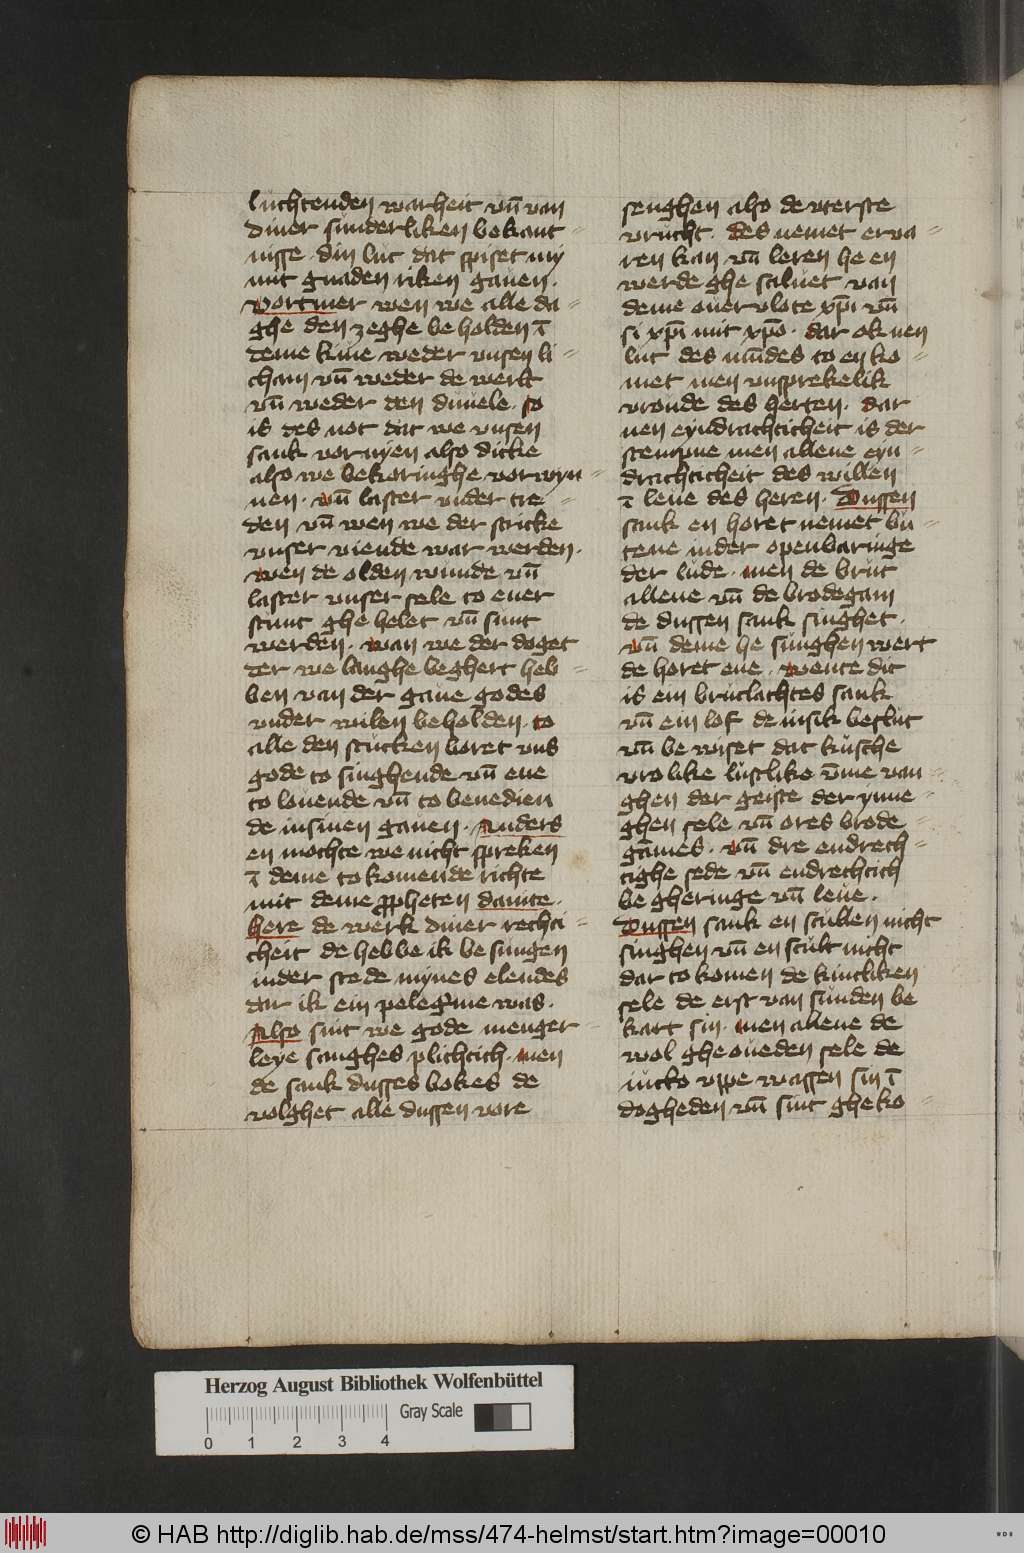 luchtenden warheit vn̄ van
diner sunderliken bekant=
nisse · din lut dat spiset my
mit gnaden riken gauen ·
Vortmer wen we alle da=
ghe den zeghe beholden ī
deme kiue weder vnsen li=
cham vn̄ weder de werlt
vn̄ weder den duuele · so
is des not dat we vnsen
sank vornyen also dicke
also we bekoringhe vorwyn=
nen · vn̄ laster nider tre=
den vn̄ wen we der stricke
vnser viende war werden ·
wen de olden wunde vn̄
laster vnser sele to euer
stunt ghe helet vn̄ sunt
werden · wan we der doget
der we langhe beghert heb=
ben van der gaue godes
vnder wilen beholden · to
alle den stucken boret vns
gode to singhende vn̄ ene
to louende vn̄ to benedien
de in sinen gauen · Anders
en mochte we nicht spreken
ī deme tokomende richte
mit deme ꝓpheten dauite ·
Here de werk diner rechti=
cheit de hebbe ik besungen
in der stede mynes elendes
dar ik ein pelegrime was ·
Also sint we gode menger
leye sanghes plichtich · men
de sank dusses bokes de
volghet alle dussen vore
senghen also de vterste
vrucht · des nemet erua=
ren kan vn̄ leren he en
werde ghe saluet van
deme ouervlote xp̄i vn̄
si xp̄i mit xp̄o · dar ok nen
lut des mūdes to en ko=
met men vnsprekelik
vronde des herten · dar
nen eyndrachticheit is der
stempne men allene eyn=
drachticheit des willen
ī leue des heren · Dussen
sank en horet nemet bu=
tene in der openbaringe
der lude · men de brut
allene vn̄ de brodegam
de dussen sank singhet ·
vn̄ deme he sunghen wert
de horet ene · wente dit
is ein brutlachtes sank
vn̄ ein lof de in sik beslut
vn̄ bewiset dat kusche
vrolike lustlike v̄me van=
ghen der geiste der ynne=
ghen sele vn̄ ores brode=
gāmes · vn̄ dre endrech=
tighe sede vn̄ endrechtich
begheringe vn̄ leue ·
Dussen sank en scullen nicht
singhen vn̄ en scult nicht
dar to komen de kintliken
sele de erst van sunden be
kart sin · men allene de
wol gheoueden sele de
iucto vppe wassen sin ī
dogheden vn̄ sint gheko=
Herzog August Bibliothek Wolfenbüttel
Gray Scale
0 1 2 3 4
© HAB http://diglib.hab.de/mss/474-helmst/start.htm?image=00010